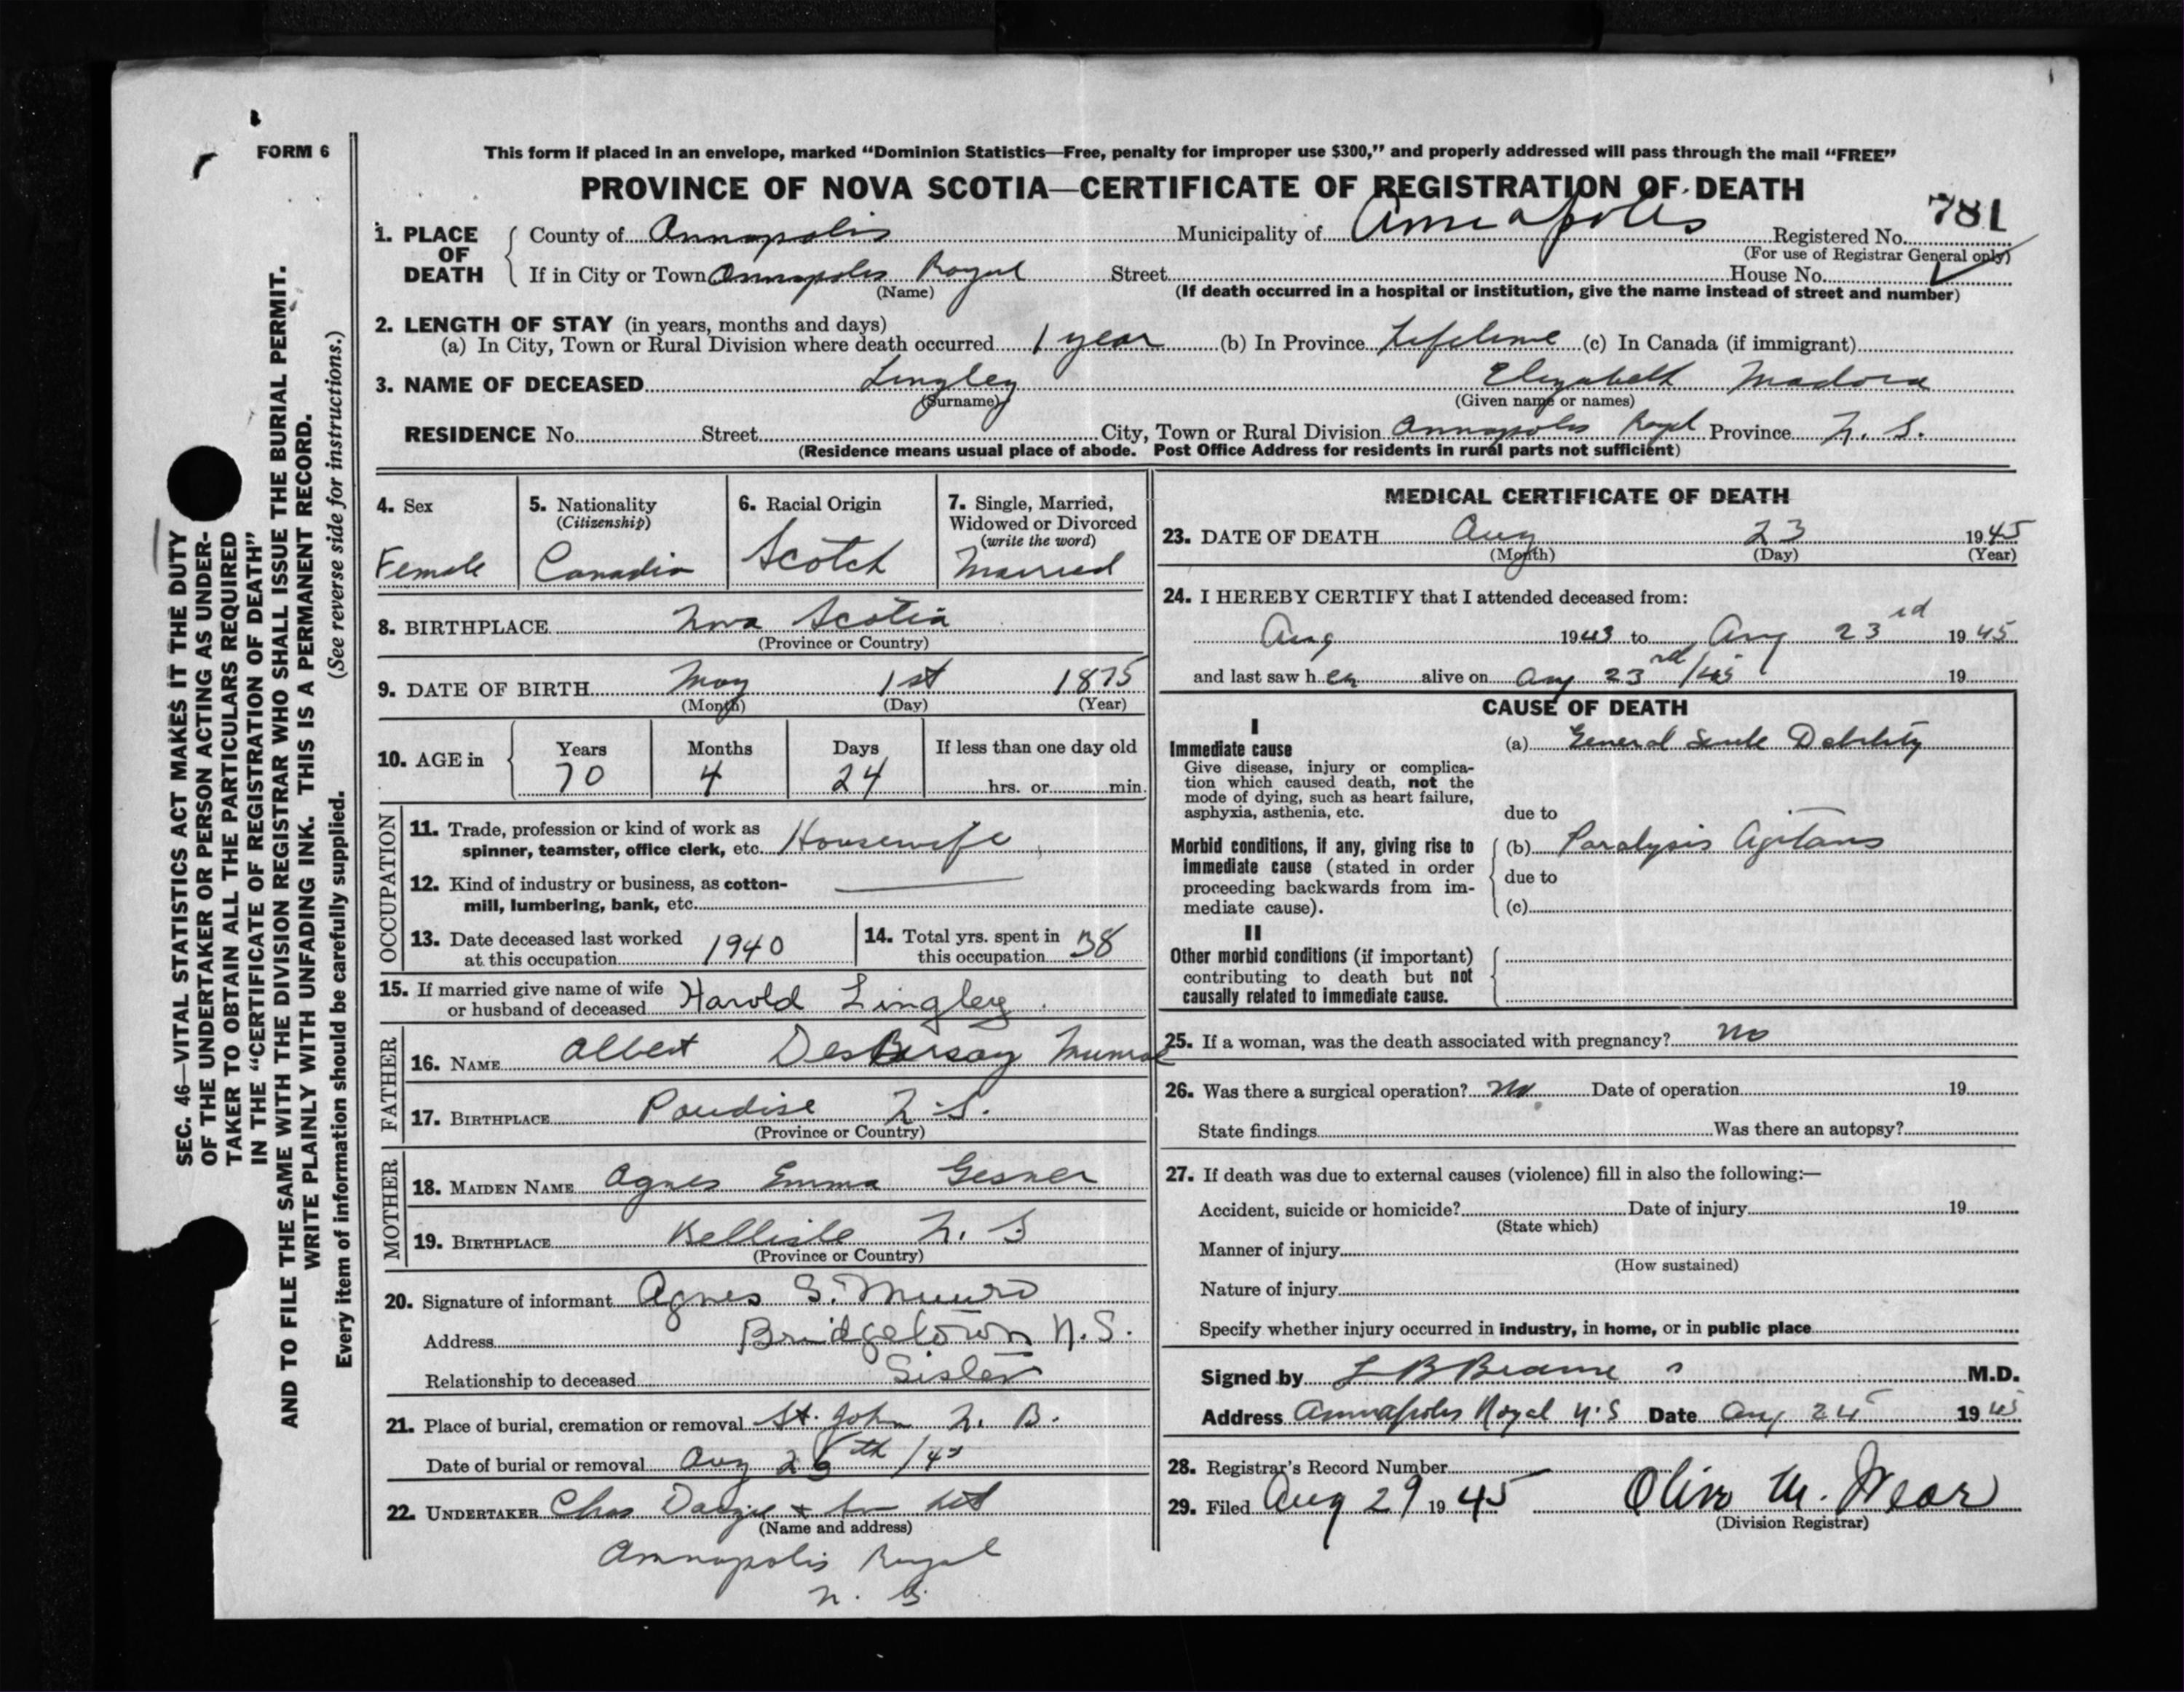 FORM 6
This form if placed in an envelope, marked “Dominion Statistics—Free, penalty for improper use $300,” and properly addressed will pass through the mail “FREE”
PROVINCE OF NOVA SCOTIA—CERTIFICATE OF REGISTRATION OF DEATH
781
1. PLACE OF DEATH
County of Annapolis Municipality of Annapolis Registered No.
(For use of Registrar General only)
If in City or Town Annapolis Royal Street House No.
(Name) (If death occurred in a hospital or institution, give the name instead of street and number)
2. LENGTH OF STAY (in years, months and days)
(a) In City, Town or Rural Division where death occurred 1 year (b) In Province Lifetime (c) In Canada (if immigrant)
3. NAME OF DECEASED Lingley Elizabeth Madora
(Surname) (Given name or names)
RESIDENCE No. Street City, Town or Rural Division Annapolis Royal Province N. S.
(Residence means usual place of abode. Post Office Address for residents in rural parts not sufficient)
4. Sex
Female
5. Nationality
(Citizenship)
Canadian
6. Racial Origin
Scotch
7. Single, Married, Widowed or Divorced
(write the word)
Married
8. BIRTHPLACE Nova Scotia
(Province or Country)
9. DATE OF BIRTH May 1st 1875
(Month) (Day) (Year)
10. AGE in
Years Months Days If less than one day old
70 4 24 hrs. or min.
OCCUPATION
11. Trade, profession or kind of work as
spinner, teamster, office clerk, etc. Housewife
12. Kind of industry or business, as cotton-
mill, lumbering, bank, etc.
13. Date deceased last worked
at this occupation 1940
14. Total yrs. spent in
this occupation 38
15. If married give name of wife
or husband of deceased Harold Lingley
FATHER
16. NAME Albert DesBrisay Munroe
17. BIRTHPLACE Paradise N.S.
(Province or Country)
MOTHER
18. MAIDEN NAME Agnes Emma Gesner
19. BIRTHPLACE Bellisle N. S
(Province or Country)
20. Signature of informant Agnes S. Munro
Address Bridgetown N.S.
Relationship to deceased Sister
21. Place of burial, cremation or removal St. John N. B.
Date of burial or removal Aug 26th/45
22. UNDERTAKER Chas
(Name and address)
Annapolis Royal
N. S
MEDICAL CERTIFICATE OF DEATH
23. DATE OF DEATH Aug 23 1945
(Month) (Day) (Year)
24. I HEREBY CERTIFY that I attended deceased from:
Aug 1943 to Aug 23rd 1945
and last saw her alive on Aug 23rd/45 19
CAUSE OF DEATH
I
Immediate cause
Give disease, injury or complica-
tion which caused death, not the
mode of dying, such as heart failure,
asphyxia, asthenia, etc.
(a) General Senile Debility
due to
Morbid conditions, if any, giving rise to
immediate cause (stated in order
proceeding backwards from im-
mediate cause).
(b) Paralysis Agitans
due to
(c)
II
Other morbid conditions (if important)
contributing to death but not
causally related to immediate cause.
25. If a woman, was the death associated with pregnancy? No
26. Was there a surgical operation? No Date of operation 19
State findings Was there an autopsy?
27. If death was due to external causes (violence) fill in also the following:—
Accident, suicide or homicide? Date of injury 19
(State which)
Manner of injury
(How sustained)
Nature of injury
Specify whether injury occurred in industry, in home, or in public place
Signed by L B Braine M.D.
Address Annapolis Royal N.S Date Aug 25 1945
28. Registrar's Record Number
29. Filed Aug 29 1945 M.
(Division Registrar)
SEC. 46—VITAL STATISTICS ACT MAKES IT THE DUTY
OF THE UNDERTAKER OR PERSON ACTING AS UNDER-
TAKER TO OBTAIN ALL THE PARTICULARS REQUIRED
IN THE “CERTIFICATE OF REGISTRATION OF DEATH”
AND TO FILE THE SAME WITH THE DIVISION REGISTRAR WHO SHALL ISSUE THE BURIAL PERMIT.
WRITE PLAINLY WITH UNFADING INK. THIS IS A PERMANENT RECORD.
Every item of information should be carefully supplied. (See reverse side for instructions.)